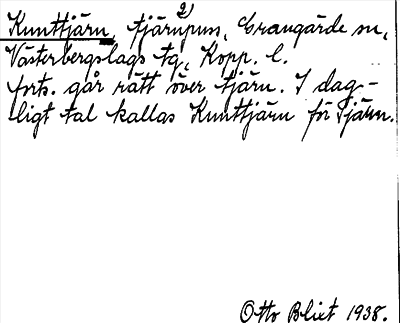 2)
Kunttjärn, tjärnpuss, Grangärde sn,
Västerbergslags tg, Kopp. l.
forts. går rätt över tjärn. I dag-
ligt tal kallas Kunttjärn för Tjärn.
Otto Blixt 1938.